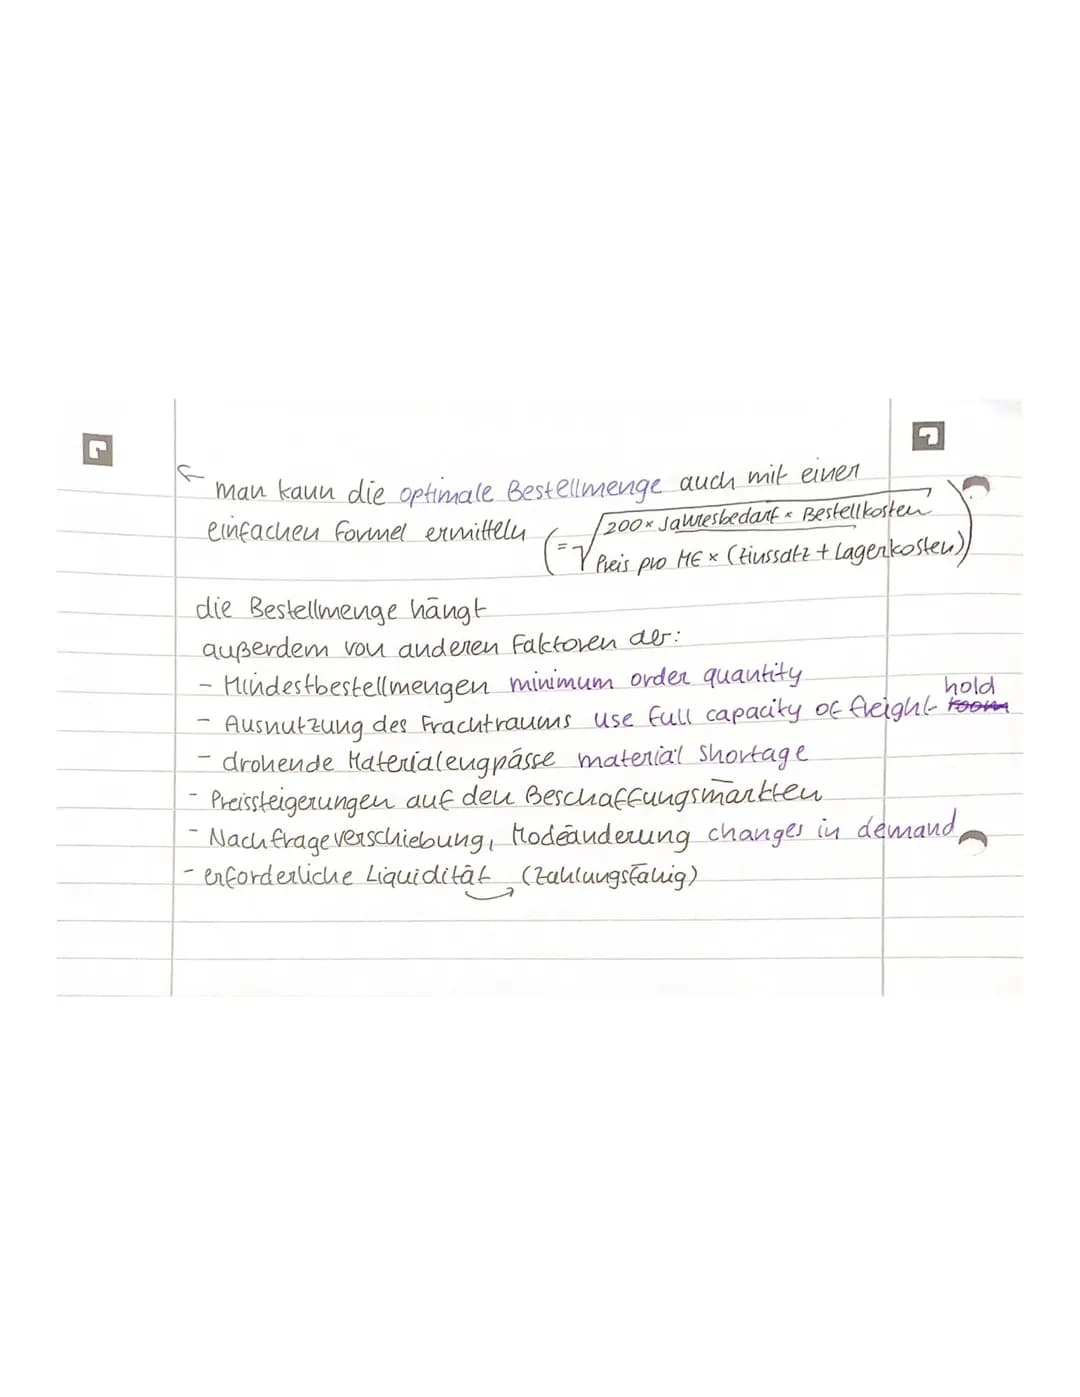 ← man kann die optimale Bestellmenge auch mit einer
einfachen Formel ermitteln (=√200 × Jahresbedarf × Bestellkosten
Preis pro ME × (Zinssatz + Lagerkosten))
die Bestellmenge hängt
außerdem von anderen Faktoren ab:
- Mindestbestellmengen minimum order quantity
- Ausnutzung des Frachtraums use full capacity of freight hold room
- drohende Materialengpässe material shortage
- Preissteigerungen auf den Beschaffungsmärkten
- Nachfrageverschiebung, Modeänderung changes in demand
- erforderliche Liquidität (Zahlungsfähig)